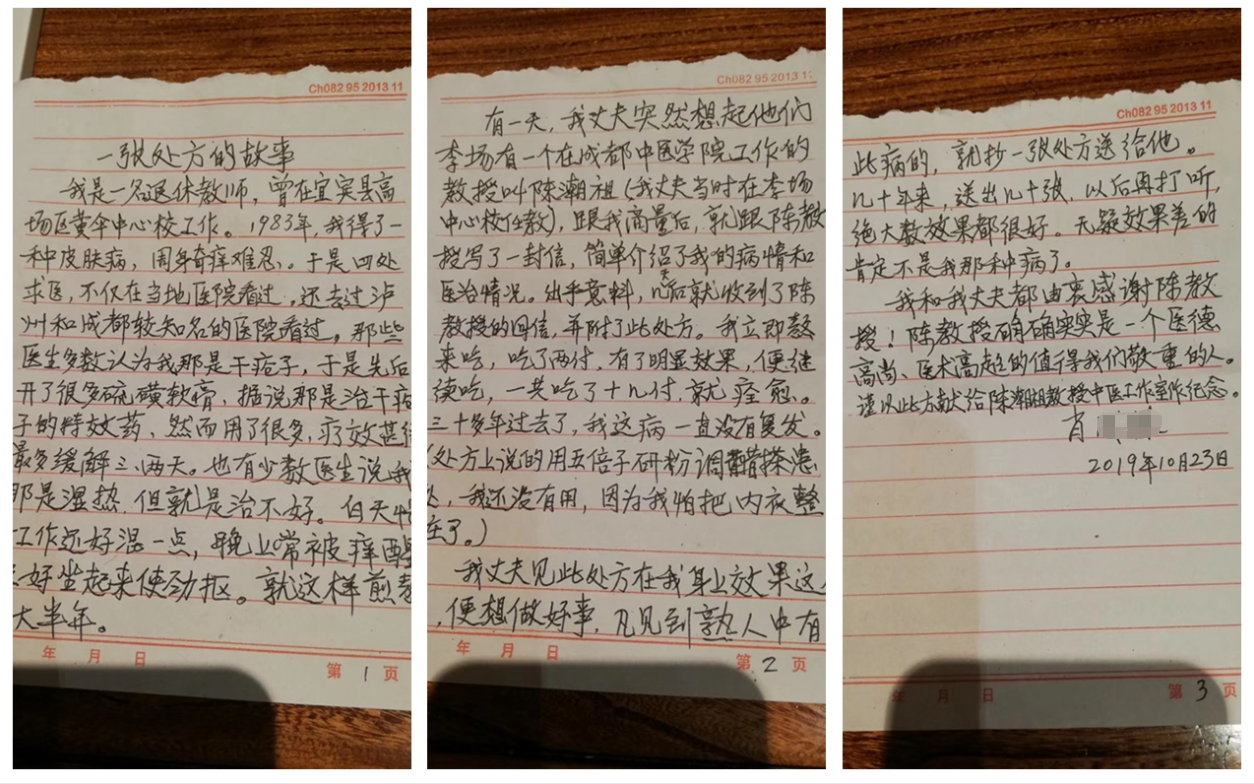 Ch082 95 2013 11
一张处方的故事
我是一名退休教师，曾在宜宾县高
场区黄伞中心校工作。1983年，我得了一
种皮肤病，周身奇痒难忍。于是四处
求医，不仅在当地医院看过，还去过泸
州和成都较知名的医院看过。那些
医生多数认为我那是干疙子，于是先后
开了很多硫磺软膏，据说那是治干疙
子的特效药、然而用了很多，疗效甚微
最多缓解三、两天。也有少数医生说我
那是湿热，但就是治不好。白天忙
工作还好混一点，晚上常被痒醒
好坐起来使劲抠。就这样煎
大半年。
年 月 日
第 1 页
Ch082 95 2013 11
有一天，我丈夫突然想起他们
李场有一个在成都中医学院工作的
教授叫陈潮祖（我丈夫当时在李场
中心校任教），跟我商量后，就跟陈教
授写了一封信，简单介绍了我的病情和
医治情况。出乎意料，几天后就收到了陈
教授的回信，并附了此处方。我立即熬
来吃，吃了两付，有了明显效果，便继
续吃，一共吃了十几付，就痊愈。
三十多年过去了，我这病一直没有复发。
（处方上说的用五倍子研粉调醋搽患
处，我还没有用，因为我怕把内衣整
了。）
我丈夫见此处方在我身上效果这
，便想做好事，凡见到熟人中有
年 月 日
第 2 页
Ch082 95 2013 11
此病的，就抄一张处方送给他。
几十年来，送出几十张，以后再打听，
绝大数效果都很好。无疑效果差的
肯定不是我那种病了。
我和我丈夫都由衷感谢陈教
授！陈教授确确实实是一个医德
高尚、医术高超的值得我们敬重的人。
谨以此方献给陈潮祖教授中医工作室作纪念。
肖
2019年10月23日
年 月 日
第 3 页